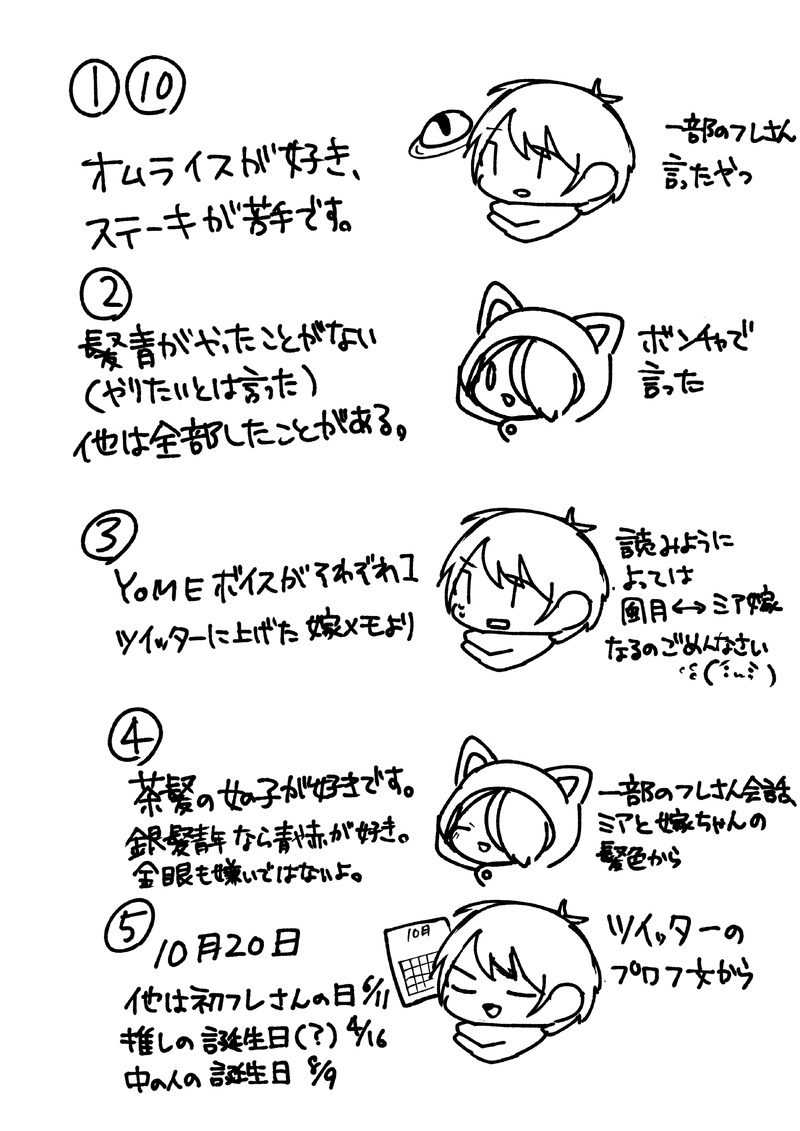 ① ⑩
オムライスが好き、
ステーキが苦手です。
一部のフレさん
言ったやつ
②
髪青がやったことがない
(やりたいとは言った)
他は全部したことがある。
ボンチャで
言った
③
YOMEボイスがそれぞれ1
ツイッターに上げた嫁メモより
読みように
よっては
風月↔ミア嫁
なるのごめんなさい
④
茶髪の女の子が好きです。
銀髪青年なら青や赤が好き。
金眼も嫌いではないよ。
一部のフレさん会話、
ミアと嫁ちゃんの
髪色から
⑤
10月20日
他は初フレさんの日 6/11
推しの誕生日(?) 4/16
中の人の誕生日 8/9
10月
ツイッターの
プロフ文から